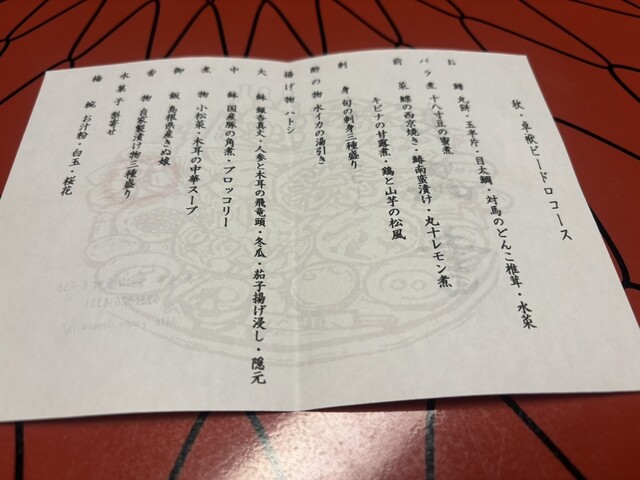 秋・卓袱ビードロコース
お鰭 丸餅・目太鯛・対馬のどんこ椎茸・水菜
バラ煮 十八寸豆の蜜煮
前菜 鰹の西京焼き・鰆南蛮漬け・丸十レモン煮
キビナの甘露煮・鶏と山芋の松風
刺身 旬の刺身三種盛り
酢の物 水イカの湯引き
揚げ物 ハトシ
大鉢 銀杏真丈・人参と木耳の飛竜頭・冬瓜・茄子揚げ浸し・隠元
中鉢 国産豚の角煮・ブロッコリー
煮物 小松菜・木耳の中華スープ
御飯 島根県産きぬ娘
香物 自家製漬け物三種盛り
水菓子 梨寄せ
梅椀 お汁粉・白玉・桜花